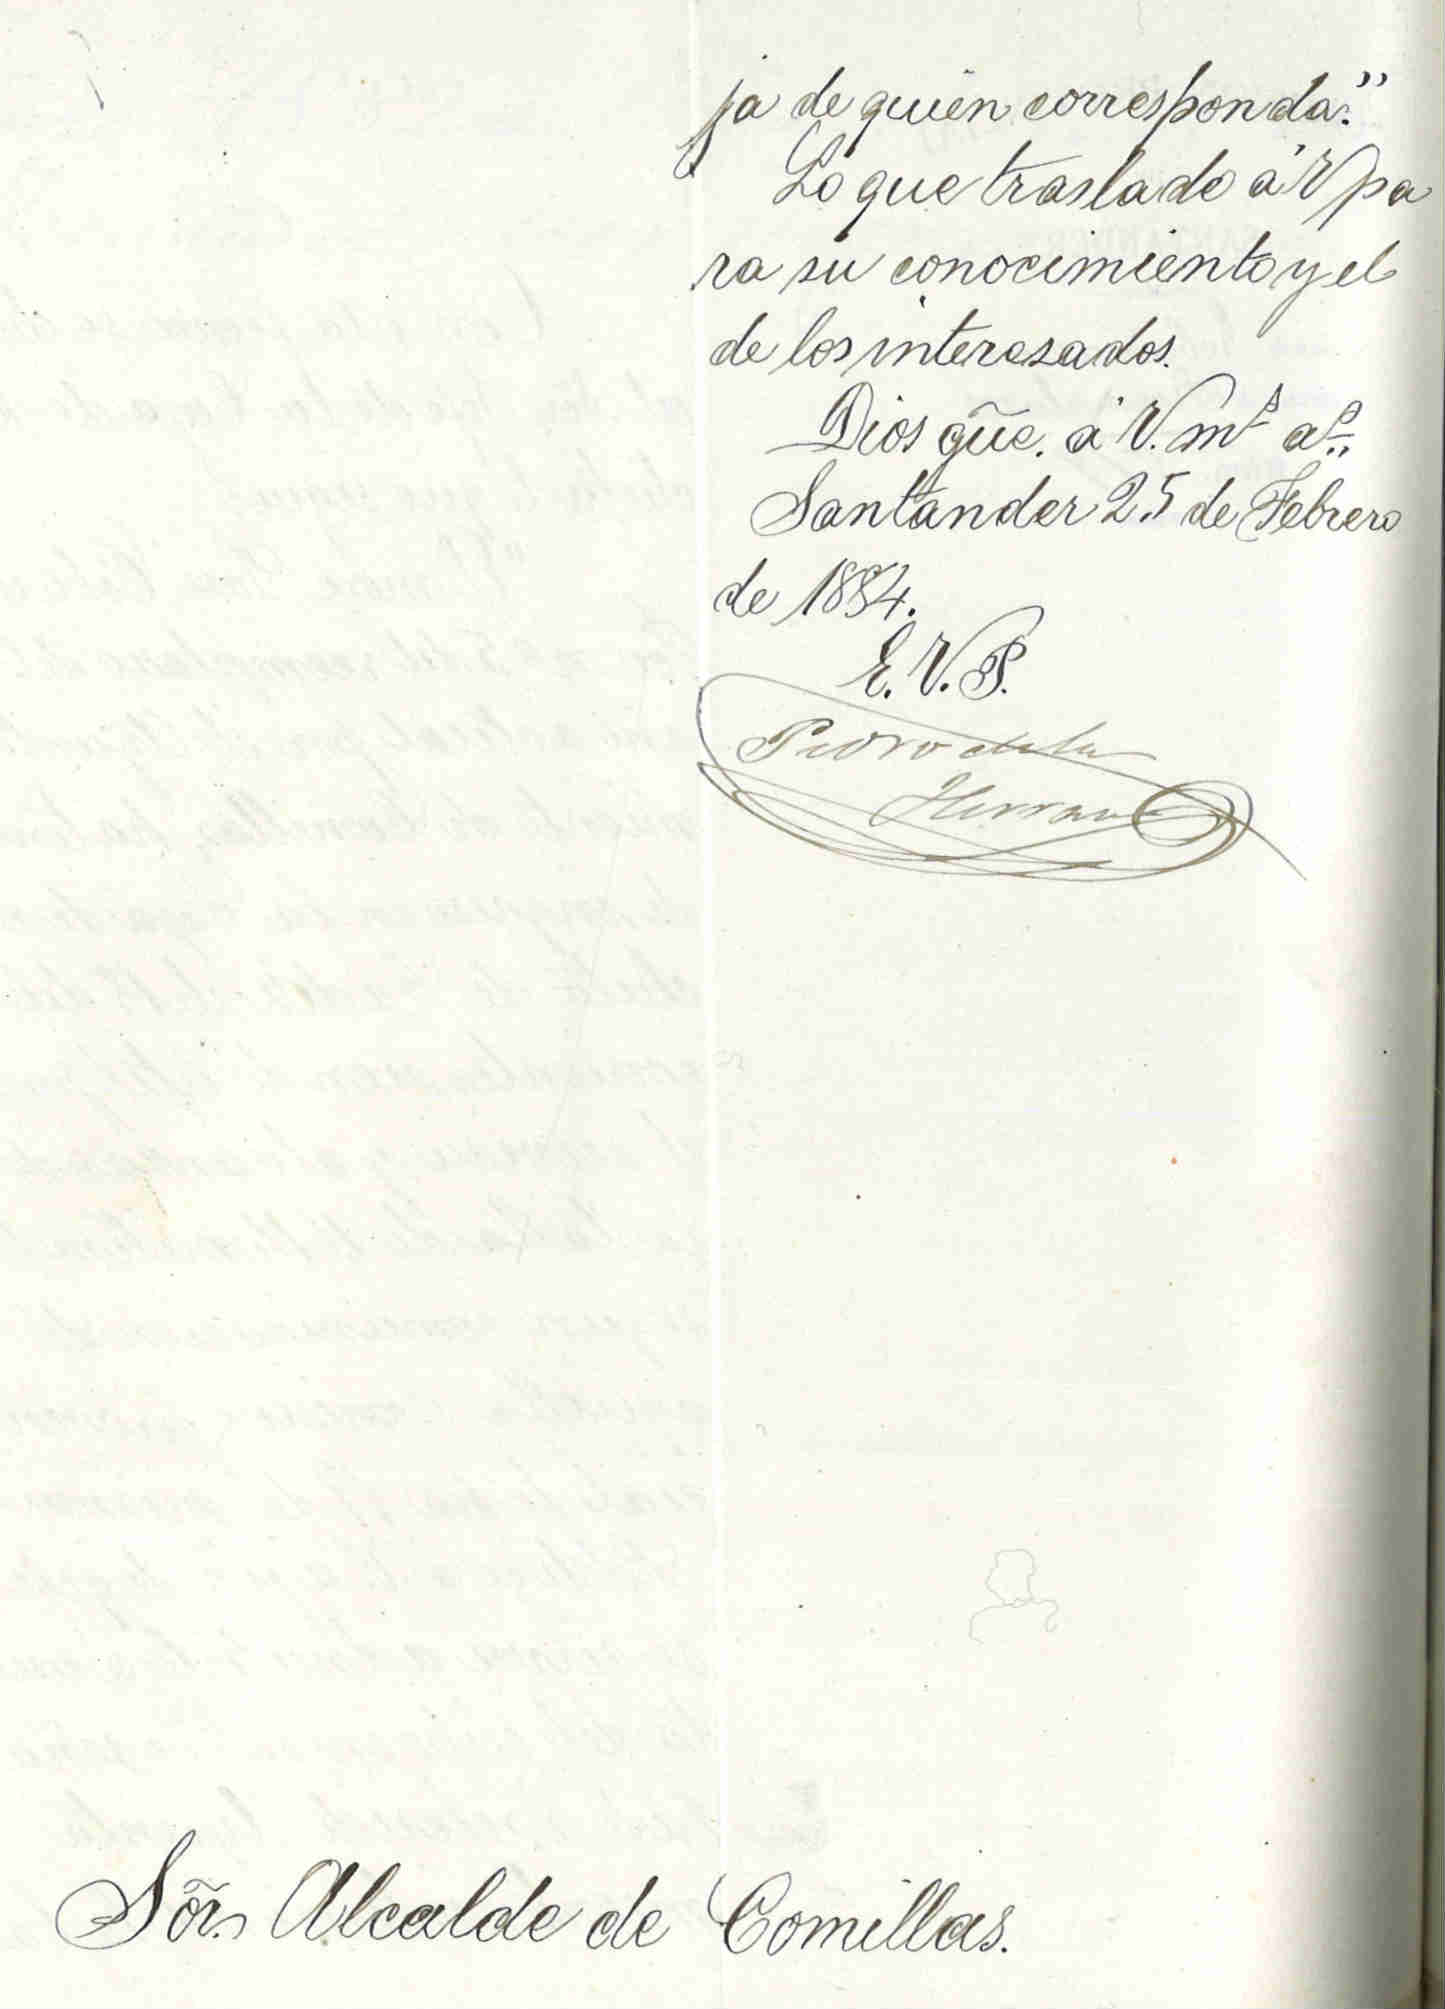 ja de quien corresponda."
Lo que traslado á V pa
ra su conocimiento y el
de los interesados.
Dios gũe. á V. mˢ aˢ.
Santander 25 de Febrero
de 1884.
E. V. P.
Pedro de la
Herran
Sõr. Alcalde de Comillas.